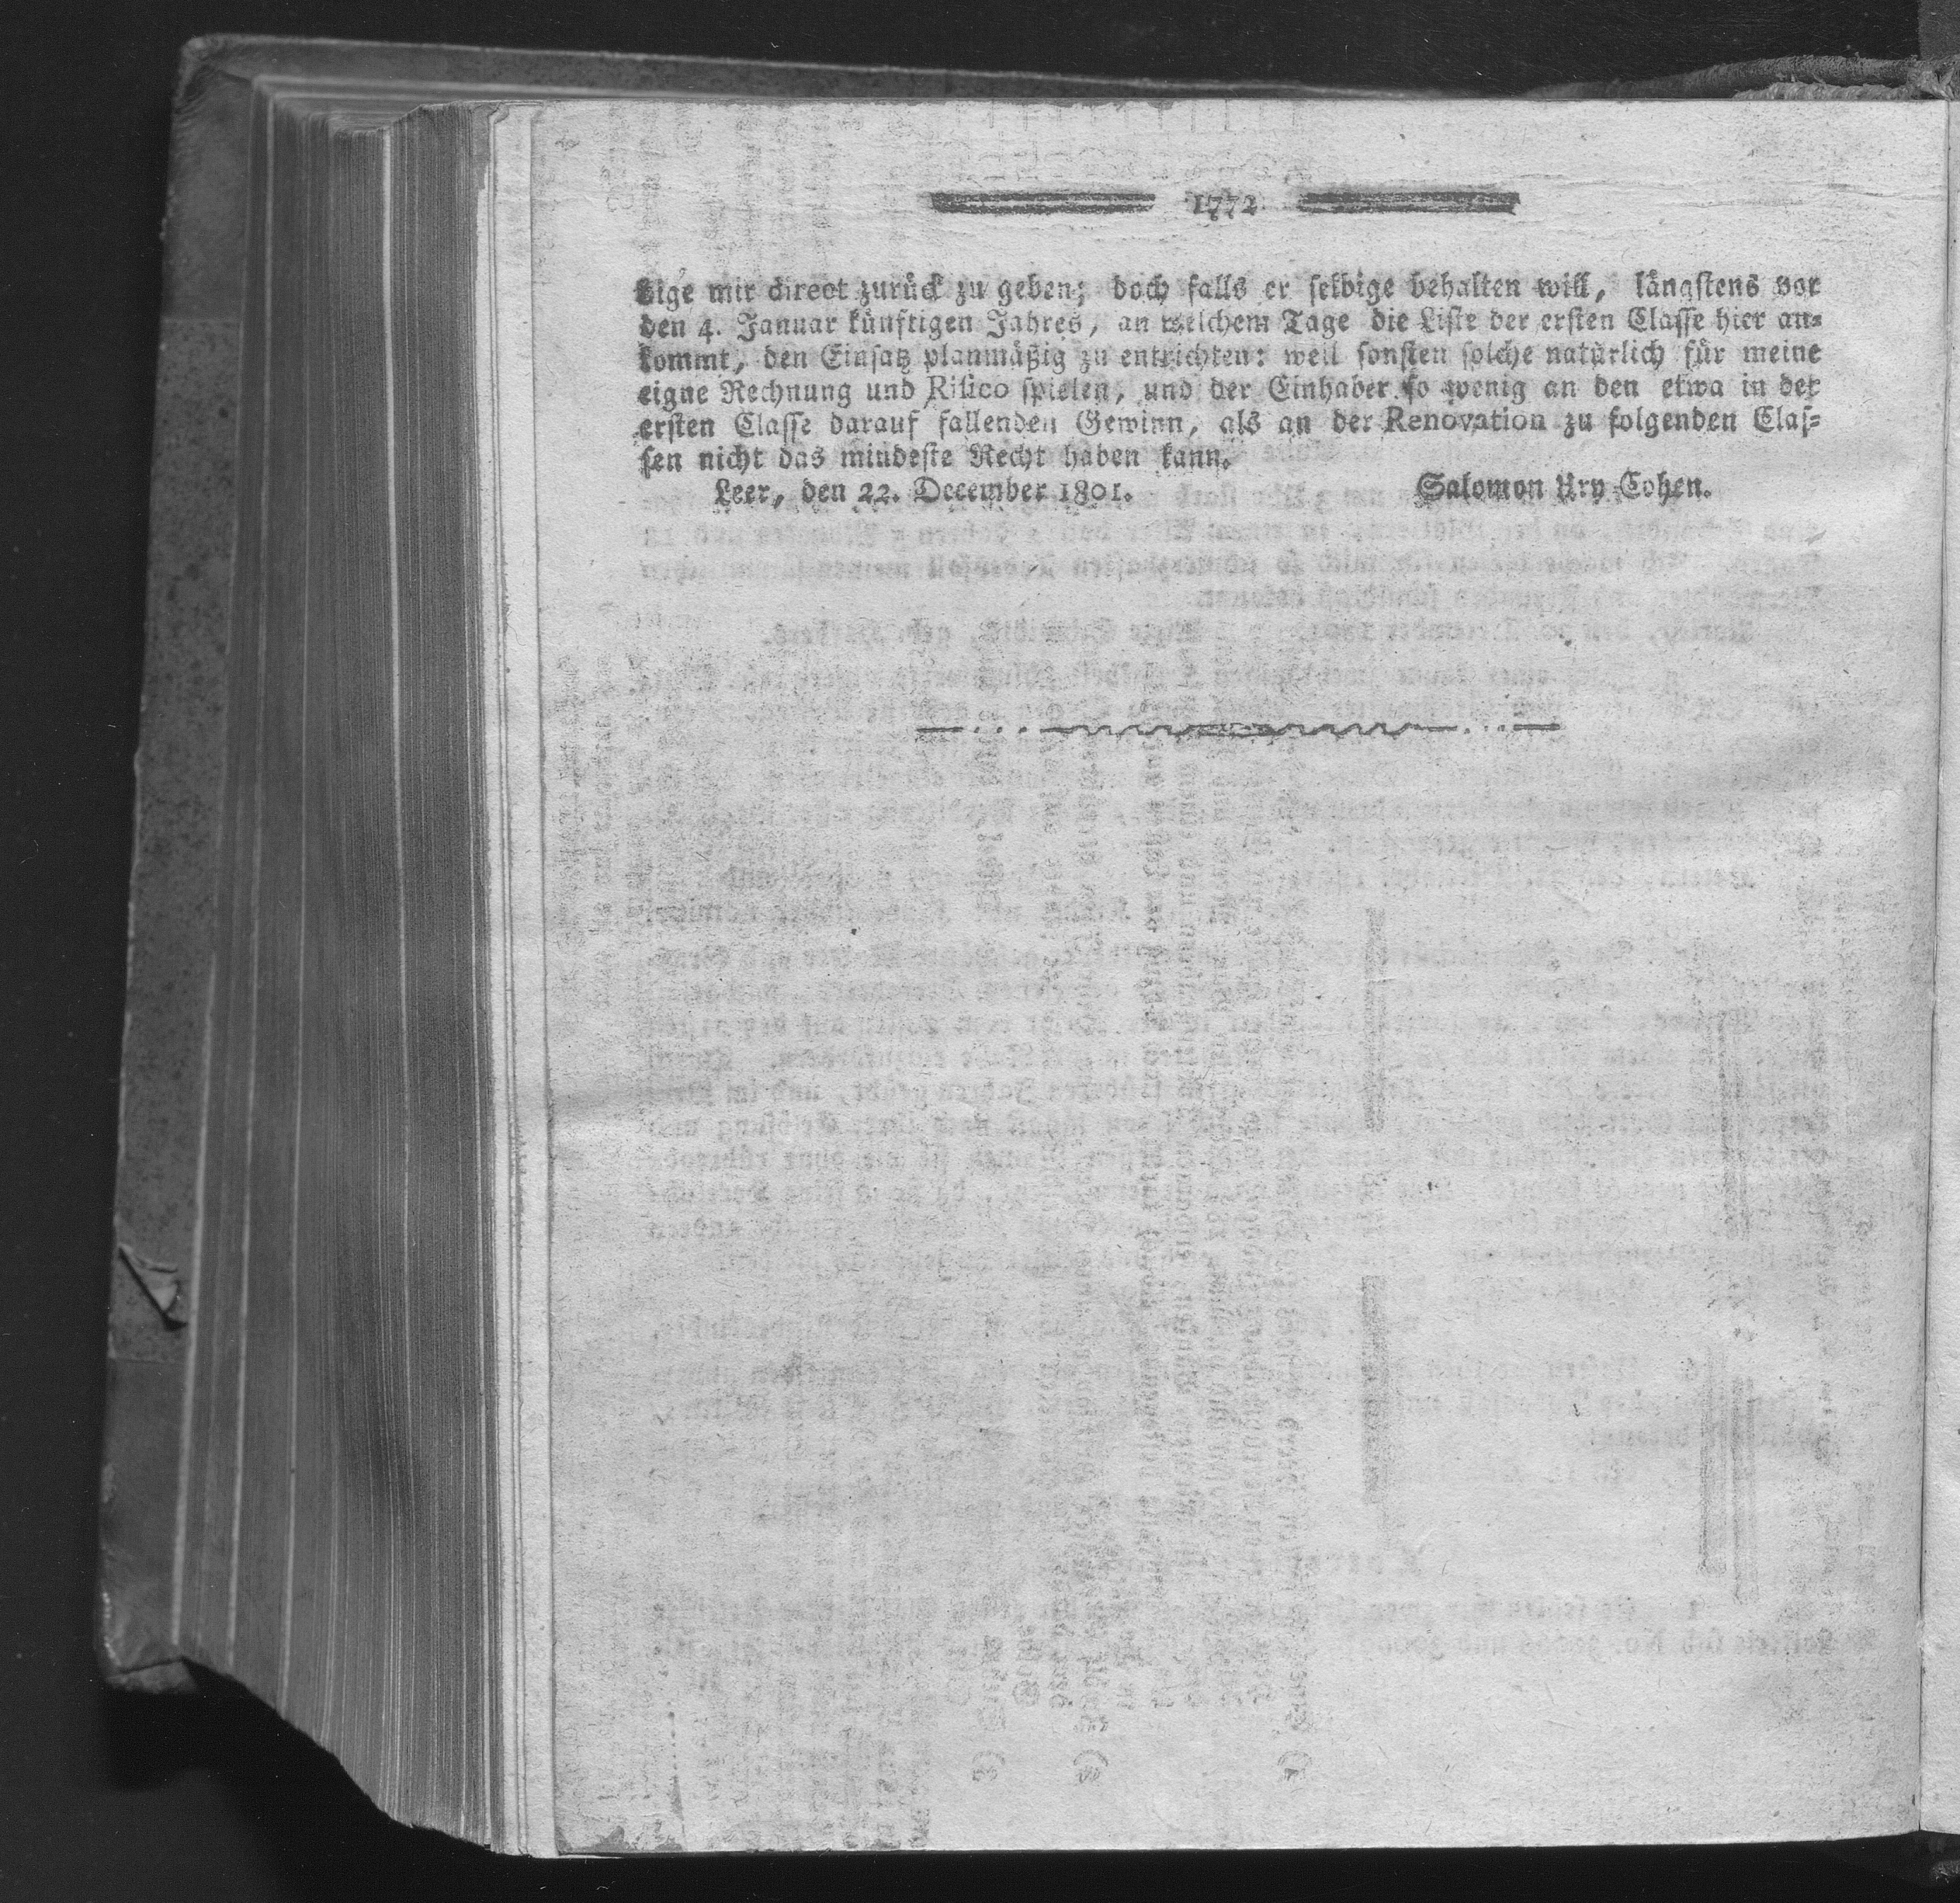 1772
bige mir direct zurück zu geben; doch falls er selbige behalten will, längstens vor
den 4. Januar künftigen Jahres, an welchem Tage die Liste der ersten Classe hier an=
kommt, den Einsatz planmäßig zu entrichten: weil sonsten solche natürlich für meine
eigne Rechnung und Risico spielen, und der Einhaber so wenig an den etwa in der
ersten Classe darauf fallenden Gewinn, als an der Renovation zu folgenden Clas=
sen nicht das mindeste Recht haben kann.
Leer, den 22. December 1801. Salomon Ury Cohen.